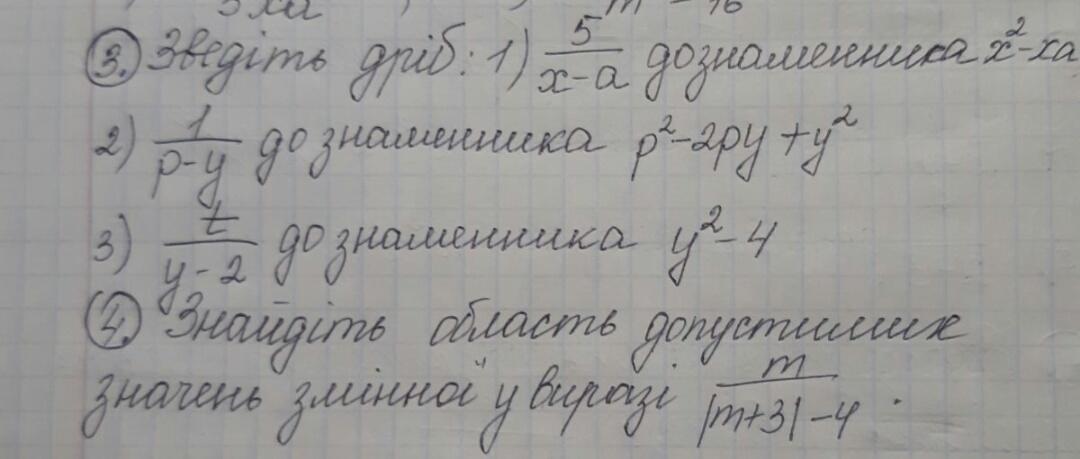 5xa m - 16
3. Зведіть дріб: 1) 5/(x-a) до знаменника x²-xa
2) 1/(p-y) до знаменника p²-2py+y²
3) t/(y-2) до знаменника y²-4
4. Знайдіть область допустимих
значень змінної у виразі m/(|m+3|-4).